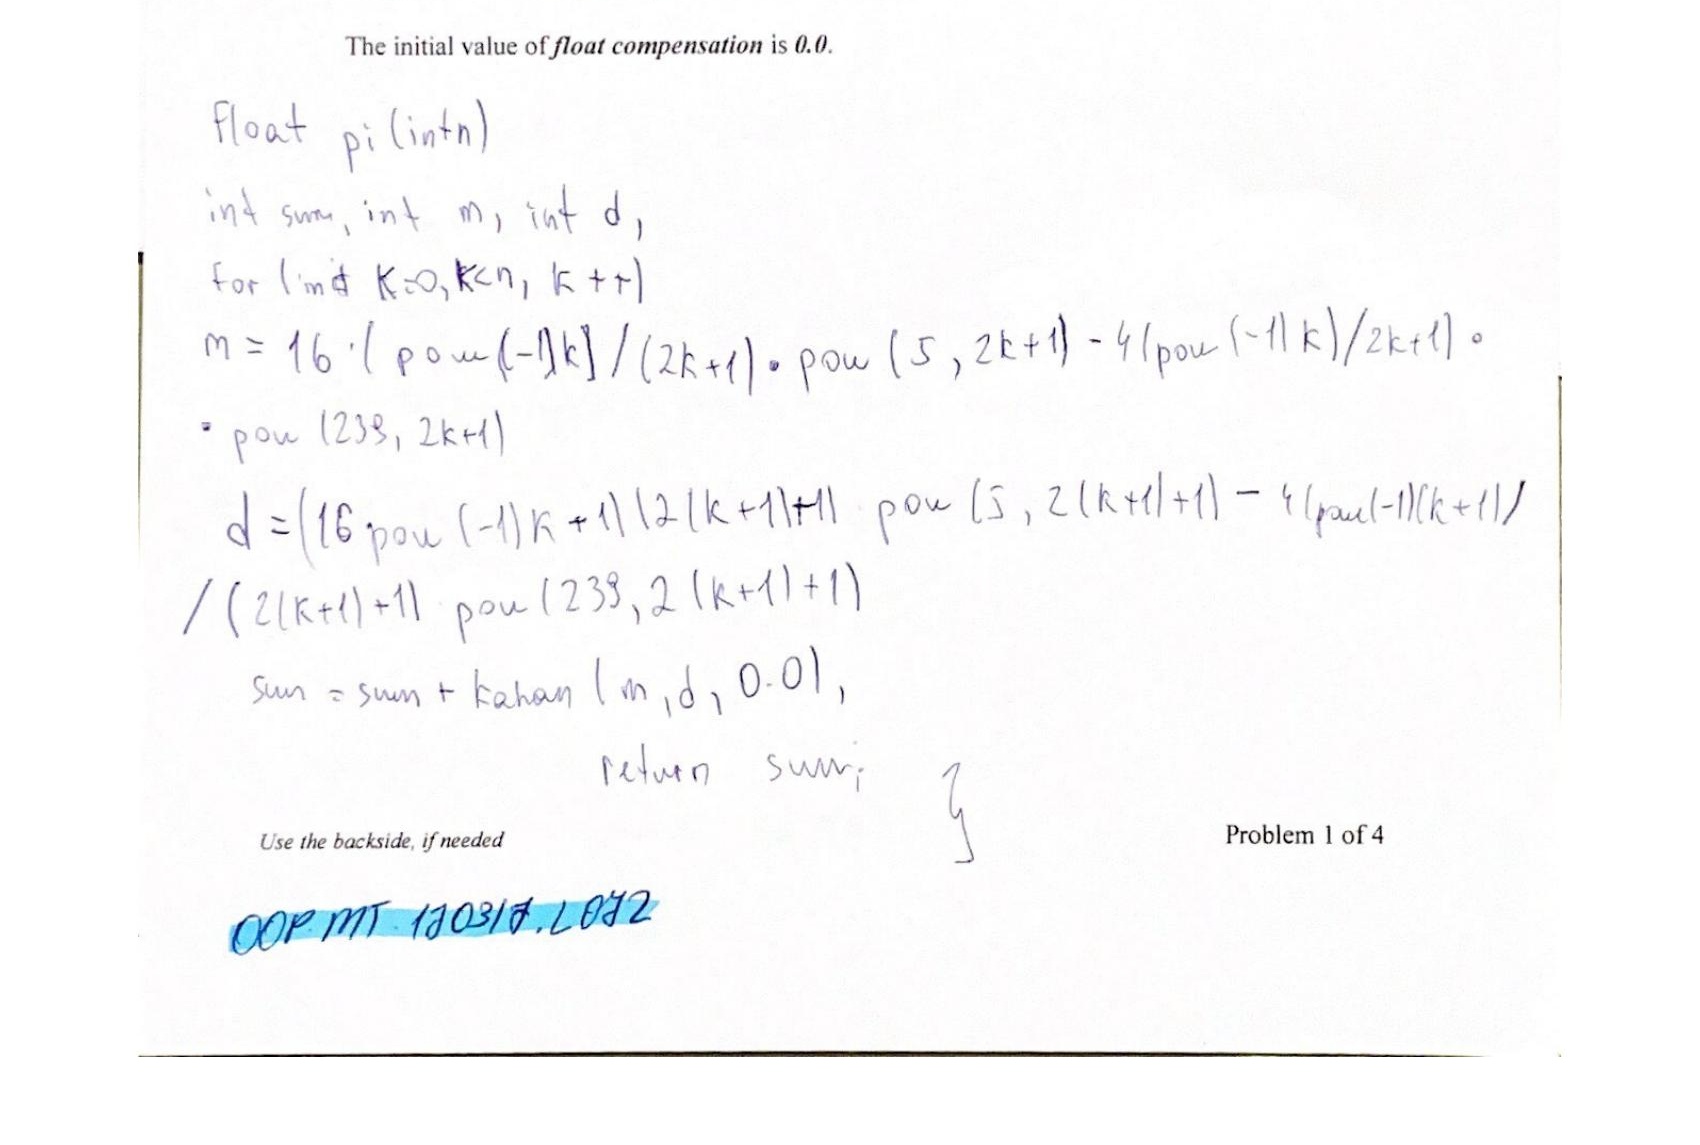 The initial value of float compensation is 0.0.
float pi (int n)
int sum, int m, int d,
for (int k=0, k<n, k++)
m = 16 · ( pow (-1)k) / (2k+1) · pow (5, 2k+1) - 4 (pow (-1) k) / 2k+1) ·
· pow (239, 2k+1)
d = (16 pow (-1) k + 1) (2(k+1)+1) pow (5, 2(k+1)+1) - 4 (pow(-1)(k+1) /
/ (2(k+1)+1) pow (239, 2(k+1)+1)
sum = sum + kahan (m, d, 0.0),
return sum;
}
Use the backside, if needed
Problem 1 of 4
OOP. MT. 170317. L072